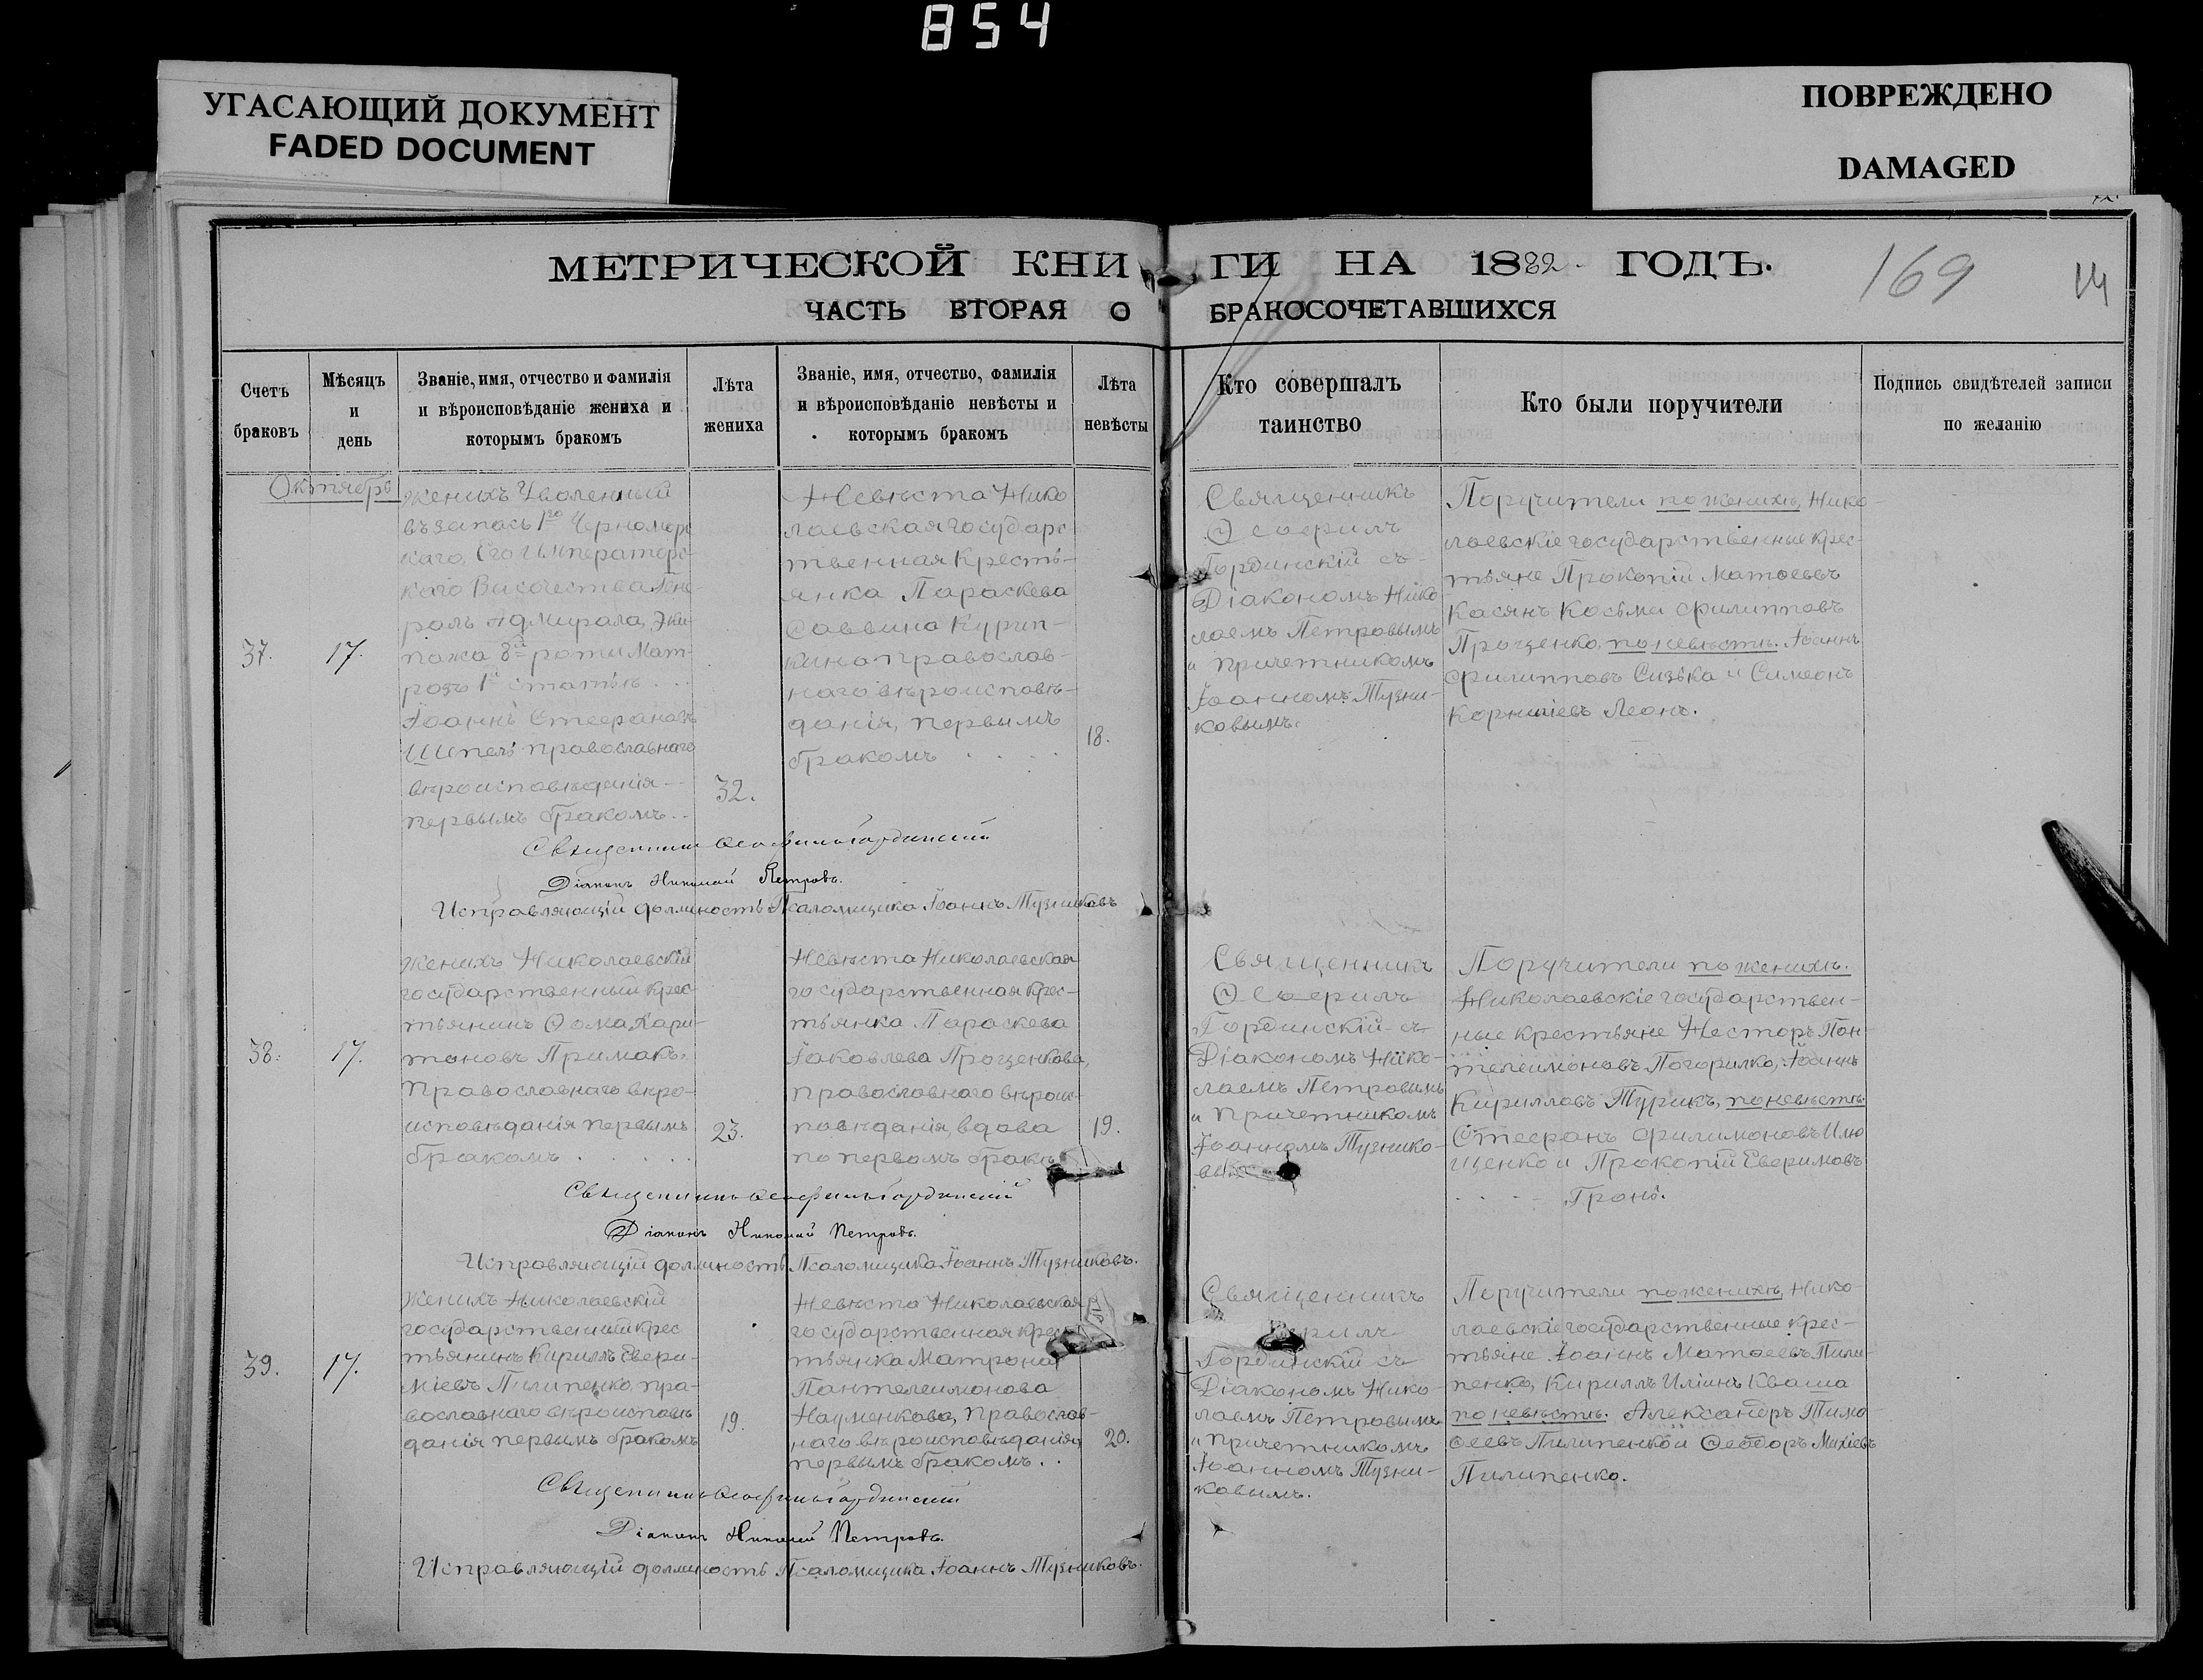 854
УГАСАЮЩИЙ ДОКУМЕНТ
FADED DOCUMENT
ПОВРЕЖДЕНО
DAMAGED
МЕТРИЧЕСКОЙ КНИГИ НА 1882 ГОДЪ.
169
ЧАСТЬ ВТОРАЯ О БРАКОСОЧЕТАВШИХСЯ
Счетъ
браковъ
Мѣсяцъ
и
день
Званіе, имя, отчество и фамилія
и вѣроисповѣданіе жениха и
которымъ бракомъ
Лѣта
жениха
Званіе, имя, отчество, фамилія
и вѣроисповѣданіе невѣсты и
которымъ бракомъ
Лѣта
невѣсты
Кто совершалъ
таинство
Кто были поручители
Подпись свидѣтелей записи
по желанію
Октябрь
37.
17.
Женихъ Уволенный
въ запасъ 1го Черномор
каго, Его Императорс-
каго Височества Гене-
ралъ Адмирала, Эки-
пажа 8й роти Мат-
розъ 1й статьи
Іоаннъ Стефановъ
Шпель православнаго
вѣроисповѣданія
первымъ бракомъ.
32.
Невѣста Нико
лаевская государс
твенная Кресть-
янка Параскева
Саввина Куріп-
кина православ-
наго вѣроисповѣ-
данія, первымъ
бракомъ
18.
Священникъ
Ѳеофилъ
Гординскій съ
Діакономъ Нико
лаемъ Петровымъ
и причетникомъ
Іоанномъ Тузни-
ковымъ.
Поручители по женихѣ, Нико-
лаевскіе государственные крес-
тьяне Прокопій Матѳеевъ
Касянъ Косьма Филипповъ
Проценко, по невѣстѣ. Іоаннъ
Филипповъ Сизька и Симеонъ
Корниліевъ Леонъ.
Священникъ Ѳеофилъ Гординскій
Діаконъ Николай Петровъ.
Исправляющій должность Псаломщика Іоаннъ Тузниковъ
38.
17.
Женихъ Николаевскій
государственный крес
тьянинъ Ѳома Хари-
тоновъ Примакъ,
Православнаго вѣро-
исповѣданія первымъ
бракомъ
23.
Невѣста Николаевская
государственная крес-
тьянка Параскева
Іаковлева Проценкова,
православнаго вѣроис-
повѣданія, вдова
по первомъ бракѣ
19.
Священникъ
Ѳеофилъ
Гординскій съ
Діакономъ Нико-
лаемъ Петровымъ
и Причетникомъ
Іоанномъ Тузнико-
Поручители по женихѣ.
Николаевскіе государствен-
ные крестьяне Несторъ Пан
телеимоновъ Погорилко, Іоаннъ
Кирилловъ Турикъ, по невѣстѣ
Стефанъ Филимоновъ Илю
щенко и Прокопій Евфимовъ
Гронь.
Священникъ Ѳеофилъ Гординскій
Діаконъ Николай Петровъ.
Исправляющій должность Псаломщика Іоаннъ Тузниковъ.
39.
17.
Женихъ Николаевскій
государственный крес
тьянинъ Кириллъ Евфи-
міевъ Пилипенко, пра-
вославнаго вѣроисповѣ
данія первымъ бракомъ
19.
Невѣста Николаевская
государственная крес
тьянка Матрона
Пантелеимонова
Науменкова, Православ-
наго вѣроисповѣданія,
первымъ бракомъ.
20.
Священникъ
Гординскій съ
Діакономъ Нико-
лаемъ Петровымъ
и Причетникомъ
Іоанномъ Тузни-
ковымъ.
Поручители по женихѣ, Нико-
лаевскіе государственные крес-
тьяне Іоаннъ Матѳеевъ Пили-
пенко, Кириллъ Иліинъ Кваша
по невѣстѣ. Александръ Тимо-
ѳеевъ Пилипенко и Ѳеодоръ Михіевъ
Пилипенко.
Священникъ Ѳеофилъ Гординскій
Діаконъ Николай Петровъ.
Исправляющій должность Псаломщика Іоаннъ Тузниковъ.